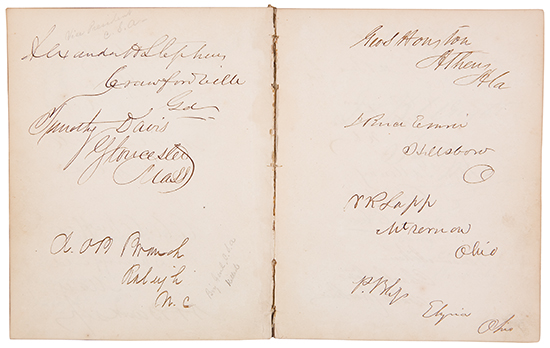 Vice President
C.S.A.
Alexander H Stephens
Crawfordville
Ga
Timothy Davis
Gloucester
Mass
L. O'B Branch
Raleigh
N.C
Geo S Houston
Athens
Ala
Hillsboro
O
Mt Vernon
Ohio
P. Bliss
Elyria
Ohio